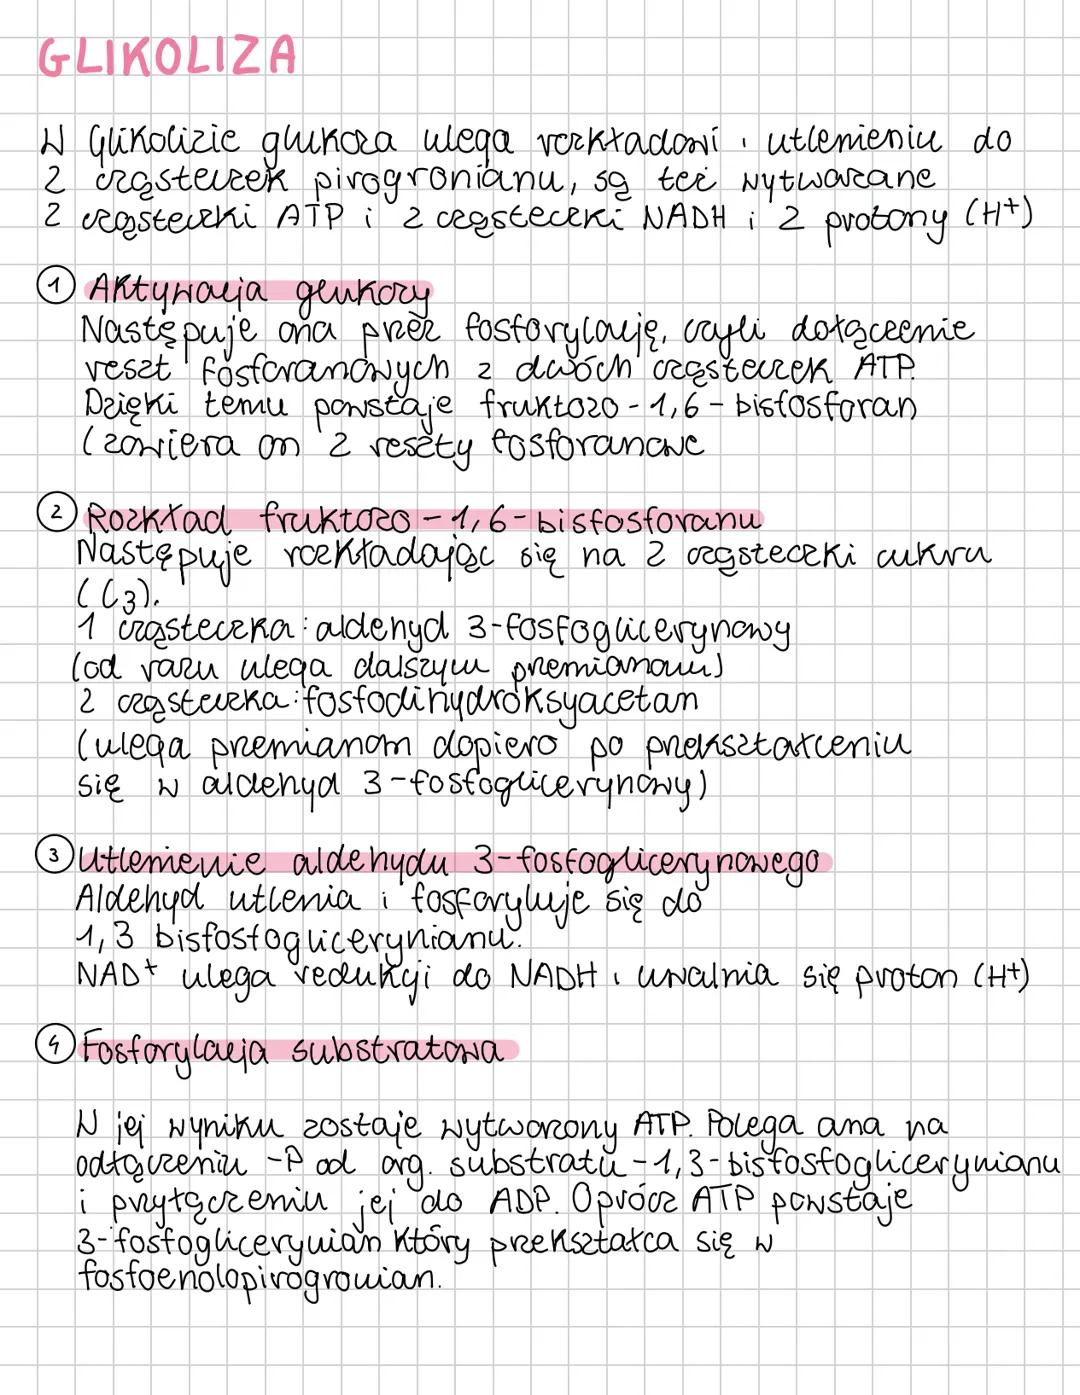 GLIKOLIZA
W Glikolizie glukoza ulega rozkładowi i utlenieniu do
2 cząsteczek pirogronianu, są też wytwarzane
2 cząsteczki ATP i 2 cząsteczki NADH i 2 protony (H+)
1 Aktywacja glukozy
Następuje ona przez fosforylację, czyli dołączenie
reszt fosforanowych z dwóch cząsteczek ATP.
Dzięki temu powstaje fruktozo-1,6-bisfosforan
(zawiera on 2 reszty fosforanowe
2 Rozkład fruktozo-1,6-bisfosforanu
Następuje rozkładając się na 2 cząsteczki cukru
(C3).
1 cząsteczka: aldehyd 3-fosfoglicerynowy
(od razu ulega dalszym przemianom)
2 cząsteczka: fosfodihydroksyacetan
(ulega przemianom dopiero po przekształceniu
się w aldehyd 3-fosfoglicerynowy)
3 Utlenienie aldehydu 3-fosfoglicerynowego
Aldehyd utlenia i fosforyluje się do
1,3 bisfosfoglicerynianu.
NAD+ ulega redukcji do NADH i uwalnia się proton (H+)
4 Fosforylacja substratowa
W jej wyniku zostaje wytworzony ATP. Polega ona na
odłączeniu -P od org. substratu-1,3-bisfosfoglicerynianu
i przyłączeniu jej do ADP. Oprócz ATP powstaje
3-fosfoglicerynian który przekształca się w
fosfoenolopirogronian.